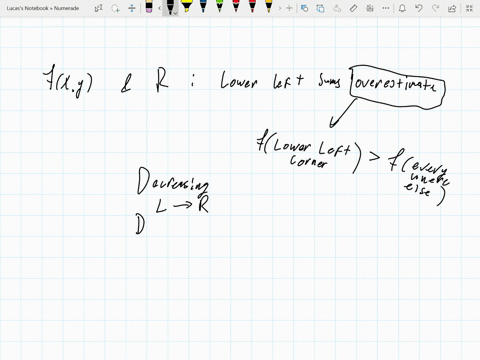 Lucas's Notebook » Numerade
f(x,y) & R : Lower left sums overestimate
f(Lower Left corner) > f(every where else)
Decreasing
L → R
D